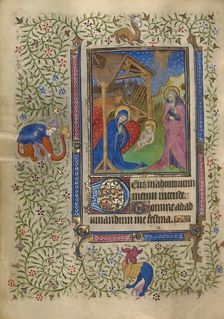 Deus in adiutorium
meum intende
Domine ad ad
iuuandum me festina